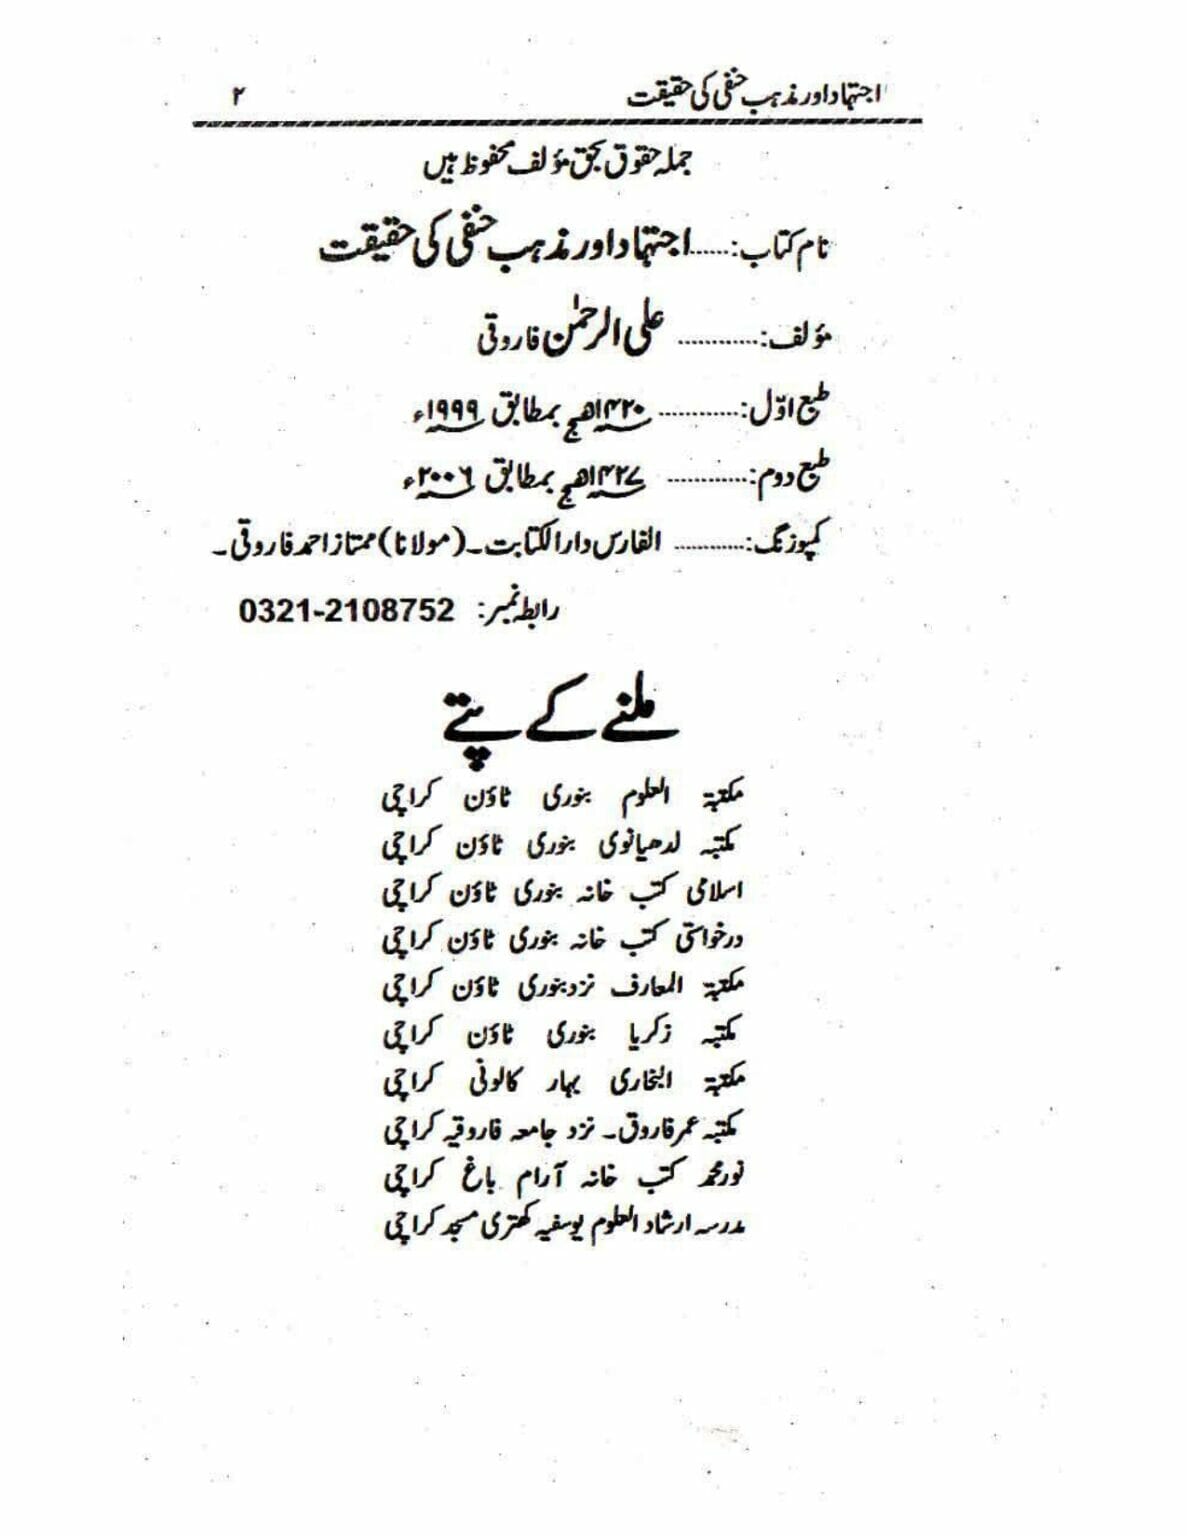 اجتہاد اور مذہب حنفی کی حقیقت ۲
جملہ حقوق بحق مؤلف محفوظ ہیں
نام کتاب:......اجتہاد اور مذہب حنفی کی حقیقت
مؤلف:............ علی الرحمٰن فاروقی
طبع اوّل:............ ۱۴۲۰ھ بمطابق ۱۹۹۹ء
طبع دوم:............ ۱۴۲۷ھ بمطابق ۲۰۰۶ء
کمپوزنگ:........... الفارس دارالکتابت۔(مولانا)ممتاز احمد فاروقی۔
رابطہ نمبر: 0321-2108752
ملنے کے پتے
مکتبۃ العلوم بنوری ٹاؤن کراچی
مکتبہ لدھیانوی بنوری ٹاؤن کراچی
اسلامی کتب خانہ بنوری ٹاؤن کراچی
درخواستی کتب خانہ بنوری ٹاؤن کراچی
مکتبۃ المعارف نزد بنوری ٹاؤن کراچی
مکتبہ زکریا بنوری ٹاؤن کراچی
مکتبۃ البخاری بہار کالونی کراچی
مکتبہ عمر فاروق۔ نزد جامعہ فاروقیہ کراچی
نور محمد کتب خانہ آرام باغ کراچی
مدرسہ ارشاد العلوم یوسفیہ کھتری مسجد کراچی